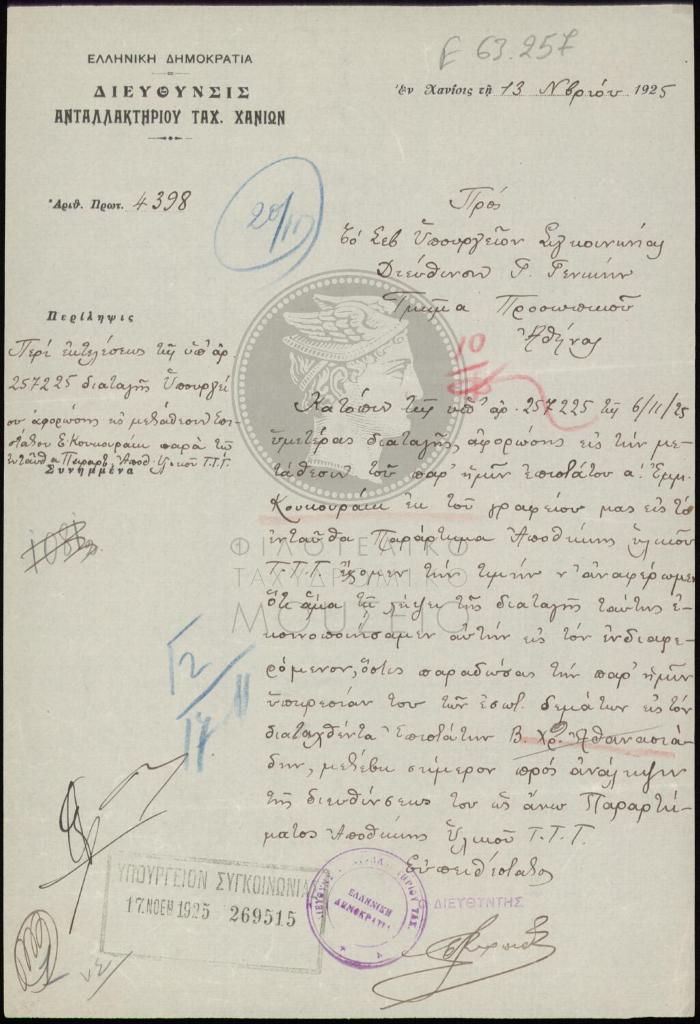 Ε 63.257
ΕΛΛΗΝΙΚΗ ΔΗΜΟΚΡΑΤΙΑ
ΔΙΕΥΘΥΝΣΙΣ
ΑΝΤΑΛΛΑΚΤΗΡΙΟΥ ΤΑΧ. ΧΑΝΙΩΝ
Ἐν Χανίοις τῇ 13 Νβρίου 1925
Ἀριθ. Πρωτ. 4398
20/11
Πρός
Τό Σεβ Ὑπουργεῖον Συγκοινωνίας
Διεύθυνσιν Τ. Γενικήν
Τμῆμα Προσωπικοῦ
Ἀθήνας
Περίληψις
Περί ἐκτελέσεως τῆς ὑπ' ἀρ.
257225 διαταγῆς Ὑπουργεί
ου ἀφορώσης εἰς μετάθεσιν Επι
στάτου Ε. Κουκουράκι παρά τῷ
ἐνταῦθα Παραρτ. Αποθ. Ὑλικοῦ Τ.Τ.Τ.
Συνημμένα
10
Κατόπιν τῆς ὑπ' ἀρ. 257225 τῆς 6/11/25
ὑμετέρας διαταγῆς, ἀφορώσης εἰς τήν με-
τάθεσιν τοῦ παρ' ἡμῖν ἐπιστάτου α! Ἐμμ.
Κουκουράκι ἐκ τοῦ γραφείου μας εἰς τό
ἐνταῦθα Παράρτημα Αποθήκης ὑλικοῦ
Τ.Τ.Τ. ἔχομεν τήν τιμήν ν' ἀναφέρωμεν
ὅτι ἅμα τῇ λήψει τῆς διαταγῆς ταύτης ἐ-
κοινοποιήσαμεν αὐτήν εἰς τόν ἐνδιαφε-
ρόμενον, ὅστις παραδώσας τήν παρ' ἡμῖν
ὑπηρεσίαν του τῶν ἐσωτ. δεμάτων εἰς τόν
διαταχθέντα Επιστάτην Β. Χρ. Ἀθανασιά-
δην, μετέβη σήμερον πρός ἀνάληψιν
τῆς διευθύνσεως τοῦ ὡς ἄνω Παραρτή-
ματος Αποθήκης Ὑλικοῦ Τ.Τ.Τ.
Εὐπειθέστατος
Ο ΔΙΕΥΘΥΝΤΗΣ
12/17 11
ΥΠΟΥΡΓΕΙΟΝ ΣΥΓΚΟΙΝΩΝΙΑ
17 ΝΟΕΜ 1925 269515
ΕΛΛΗΝΙΚΗ
ΔΗΜΟΚΡΑΤΙΑ
ΦΙΛΟΤΕΛΙΚΟ
ΤΑΧΥΔΡΟΜΙΚΟ
ΜΟΥΣΕΙΟ